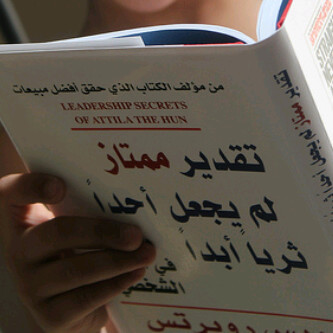 من مؤلف الكتاب الذي حقق أفضل مبيعات
LEADERSHIP SECRETS
OF ATTILA THE HUN
تقدير ممتاز
لم يجعل أحداً
ثرياً أبداً
في
الشخصي
روبرتس
تقدير ممتاز لم يجعل أحداً